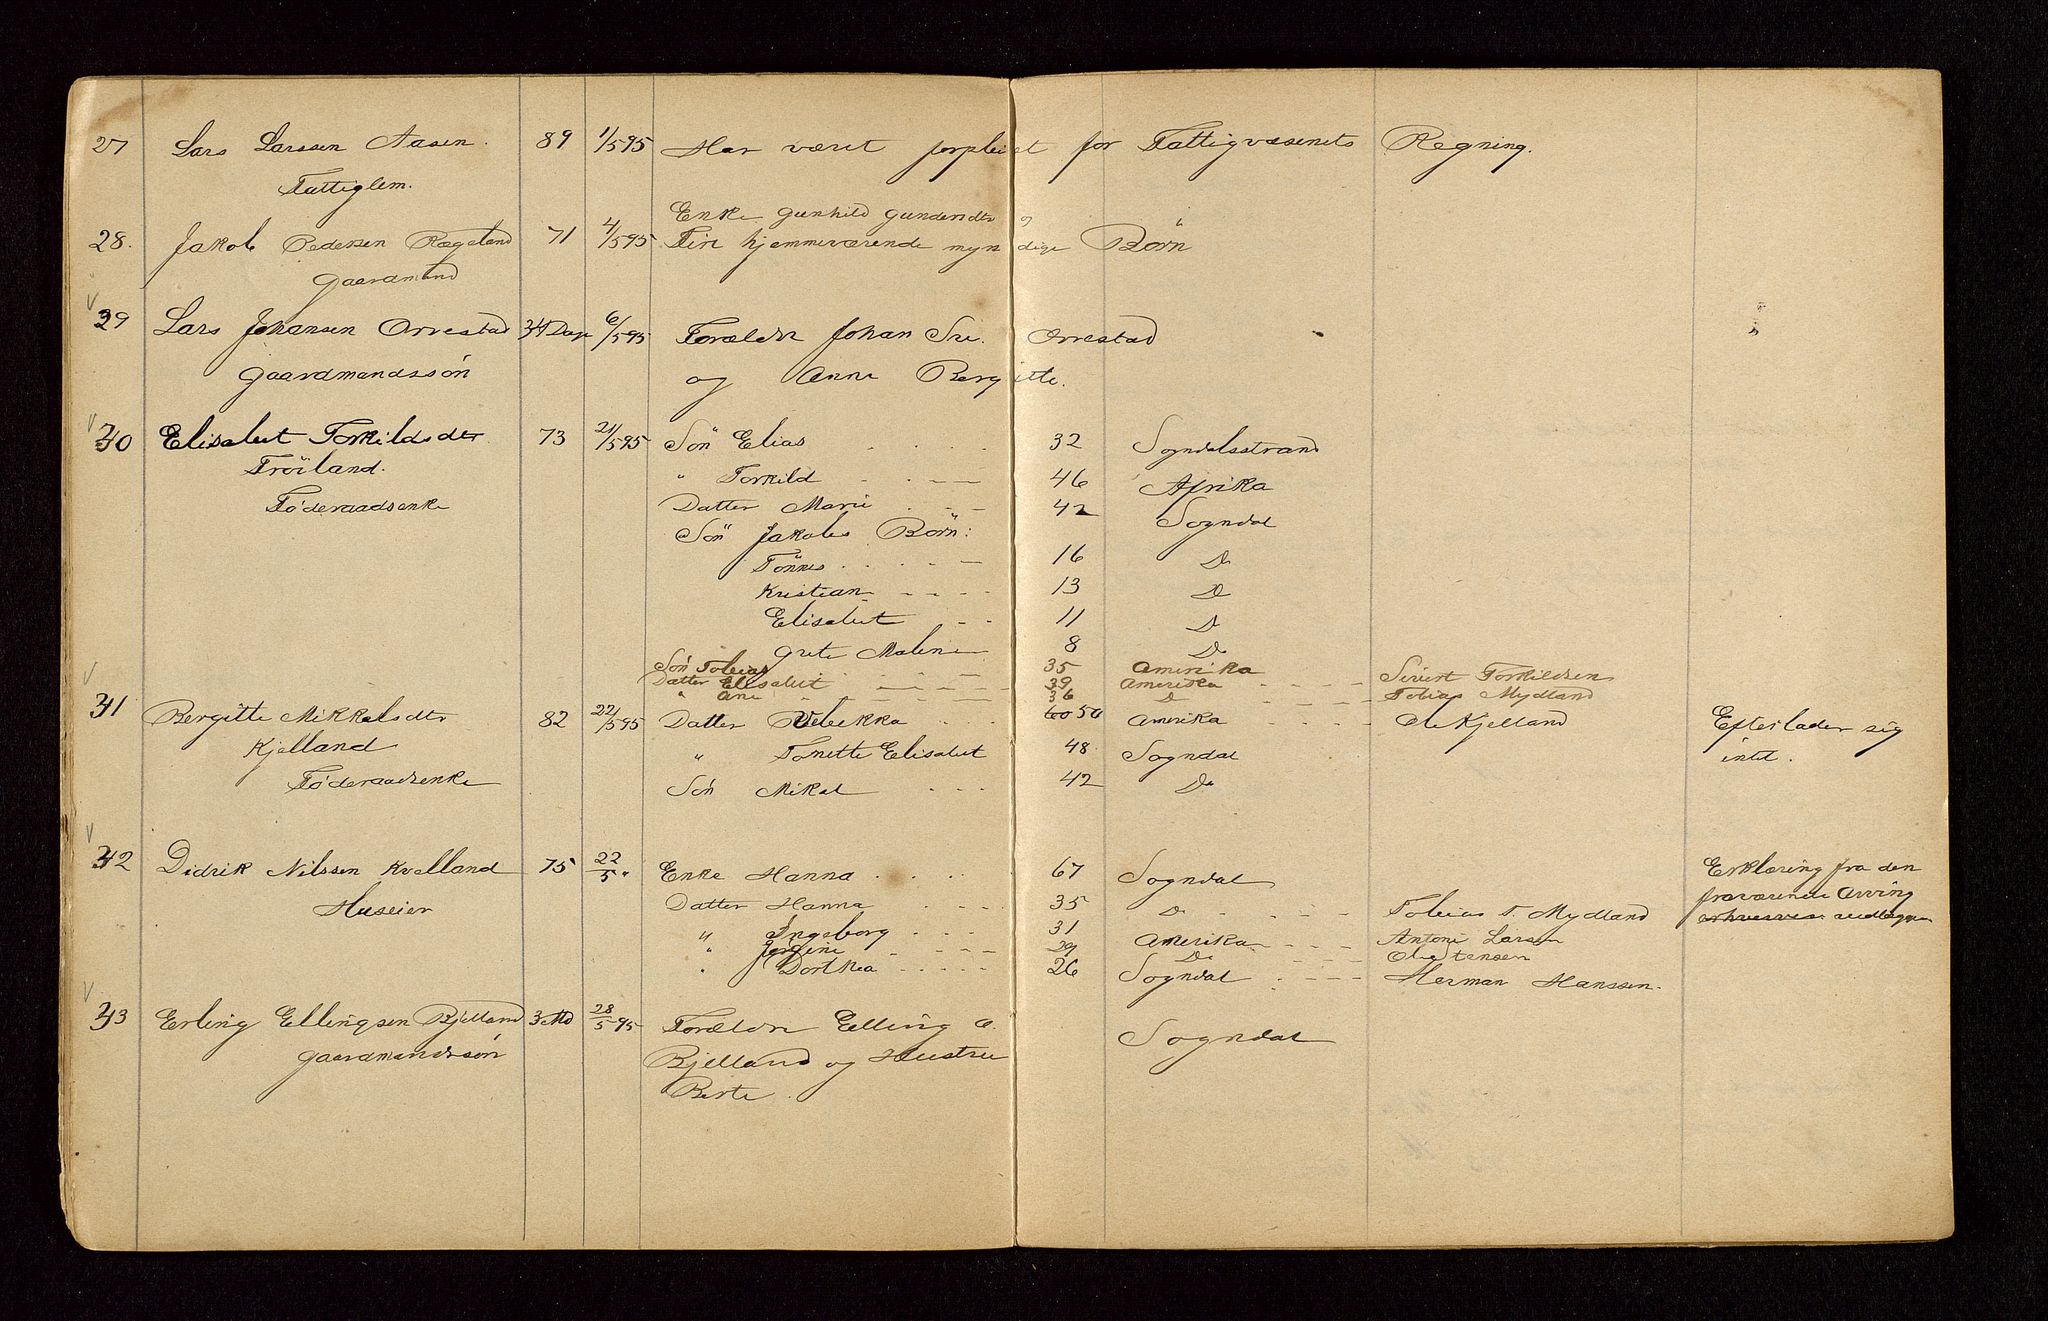 27 Lars Larssen Aasen. 89 1/5 95 Har været forpleiet for Fattigvæsenets Regning.
Fattiglem.
Enke Gunhild Gundersdtr og
28. Jakob Pedersen Rægeland 71 4/5 95 Fire hjemmeværende myndige Börn
Gaardmand
29 Lars Johansen Orrestad 34 Dage 6/5 95 Forældre Johan Orrestad
Gaardmandssön og Anne Bergitte.
30 Elisabet Torkildsdtr 73 21/5 95 Sön Elias 32 Sogndalsstrand
Tröiland. " Torkild 46 Afrika
Föderaadsenke Datter Marie 42 Sogndal
Sön Jakobs Börn:
Tönnes 16 Do
Kristian 13 Do
Elisabet 11 Do
Grete Malene 8 Do
Sön Tobias 35 Amerika Sivert Torkildsen
Datter Elisabet 39 Amerika Tobias Mydland
" Ane 36 D
31 Bergitte Mikkelsdtr 82 22/5 95 Datter Rebekka 60 50 Amerika Ole Kjelland Efterlader sig
Kjelland " Tonette Elisabet 48 Sogndal intet.
Föderaadsenke Sön Mikal 42 Do
32 Didrik Nilssen Kvelland 75 22/5 " Enke Hanna 67 Sogndal Erklæring fra den
Huseier Datter Hanna 35 D Tobias T. Mydland fraværende Arving
" Ingeborg 31 Amerika Antoni Larsen
" Jörgine 29 Do
" Dortkea 26 Sogndal Herman Hanssen.
33 Erling Ellingsen Bjelland 3 Md 28/5 95 Forældre Elling E. Sogndal
Gaardmandssön Bjelland og Hustru
Berte.